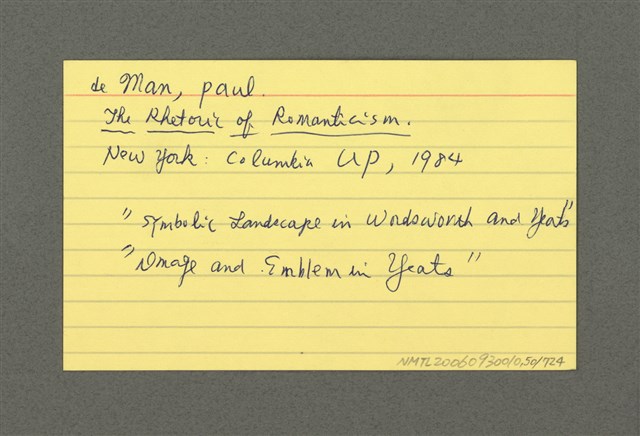 de Man, paul.
The Rhetoric of Romanticism.
New York: Columbia UP, 1984
"Symbolic Landscape in Wordsworth and Yeats"
"Image and Emblem in Yeats"
NMTL20060930010,501724